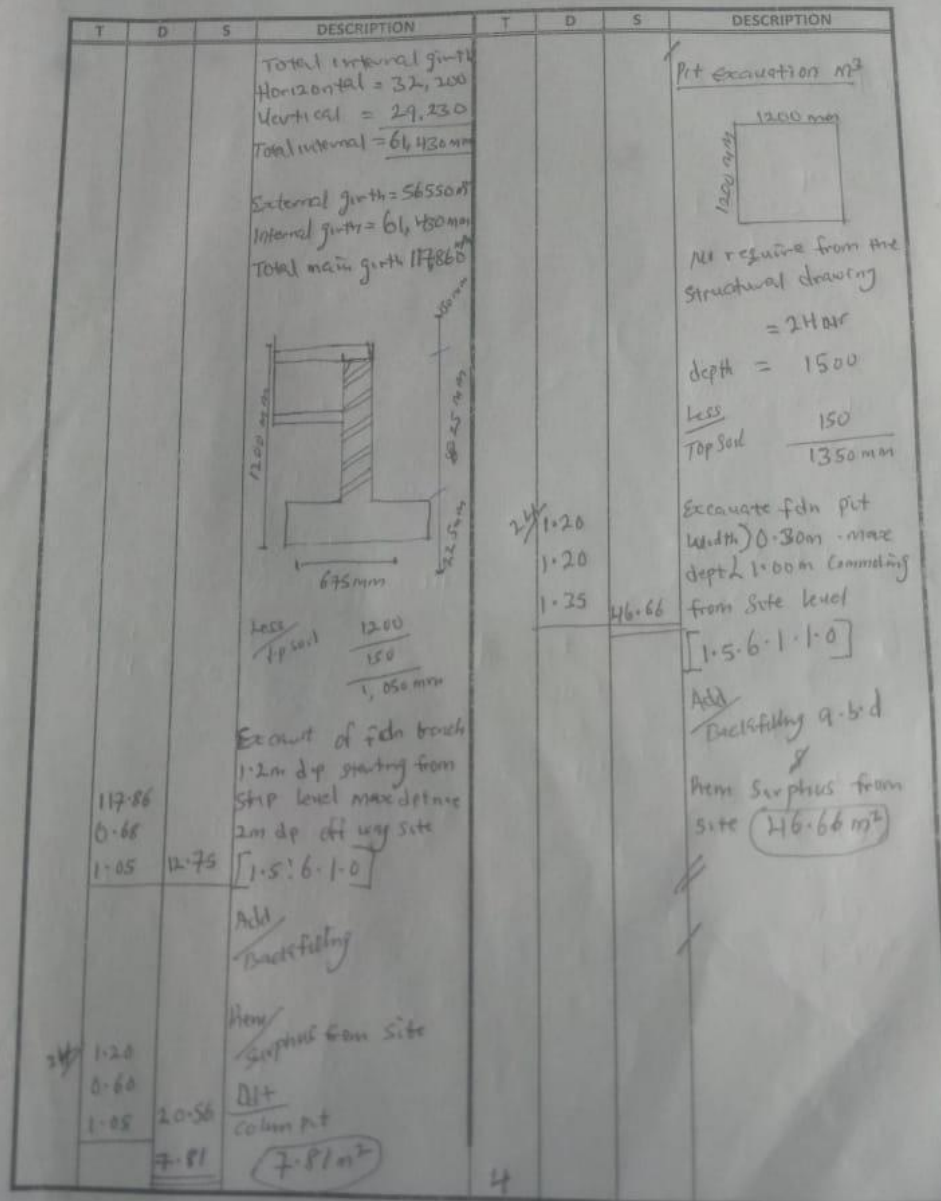 T D S DESCRIPTION T D S DESCRIPTION
Total internal girth
Horizontal = 32,200
Vertical = 29,230
Total internal = 61,430 mm
External girth = 56550
Internal girth = 61,430 mm
Total main girth 117,860
150 mm
1200 mm
825 mm
225 mm
675mm
Less
top soil 1200
150
1,050 mm
Excavt of fdn trench
1.2m dp starting from
117.86 strip level max
0.68 2m dp off site
1.05 12.75 [1.5:6.1.0]
Add
Backfilling
Rem
Surplus from site
24/ 1.20
0.60 Ddt
1.05 20.56 Column pit
7.81 7.81m²
4
Pit excavation m³
1200 mm
1200 mm
No require from the
structural drawing
= 24 Nr
depth = 1500
Less
Top Soil 150
1350 mm
24/ 1.20 Excavate fdn pit
width > 0.30m max
1.20 depth 1.00m Commencing
1.35 46.66 from Site level
[1.5.6.1.1.0]
Add
Backfilling a.b.d
&
Rem Surplus from
site 46.66 m²